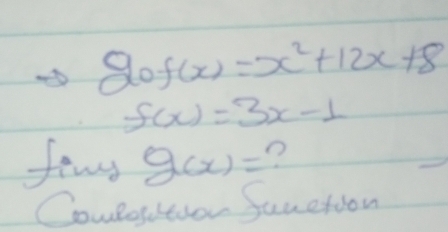 → gof(x) = x²+12x+8
f(x) = 3x-1
finy g(x) = ?
Composition function